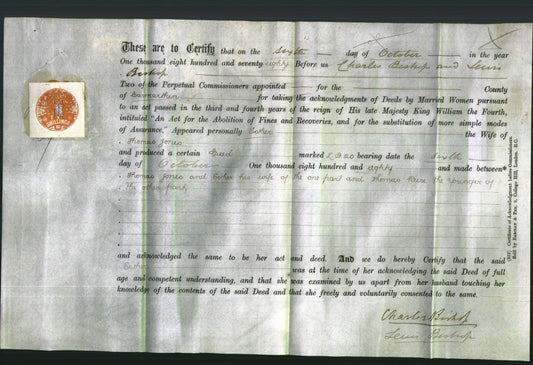 These are to Certify that on the sixth day of October in the year
One thousand eight hundred and seventy eighty Before us Charles Bishop and Lewis
Bishop
Two of the Perpetual Commissioners appointed for the County
of Carmarthen for taking the acknowledgments of Deeds by Married Women pursuant
to an act passed in the third and fourth years of the reign of His late Majesty King William the Fourth,
intituled "An Act for the Abolition of Fines and Recoveries, and for the substitution of more simple modes
of Assurance," Appeared personally Esther the Wife of
Thomas Jones
and produced a certain Deed marked bearing date the sixth
day of October One thousand eight hundred and eighty and made between
Thomas Jones and Esther his wife of the one part and Thomas the younger of
the other part
and acknowledged the same to be her act and deed. And we do hereby Certify that the said
Esther was at the time of her acknowledging the said Deed of full
age and competent understanding, and that she was examined by us apart from her husband touching her
knowledge of the contents of the said Deed and that she freely and voluntarily consented to the same.
Charles Bishop
Lewis Bishop
Certificate of Acknowledgment before Commissioners.